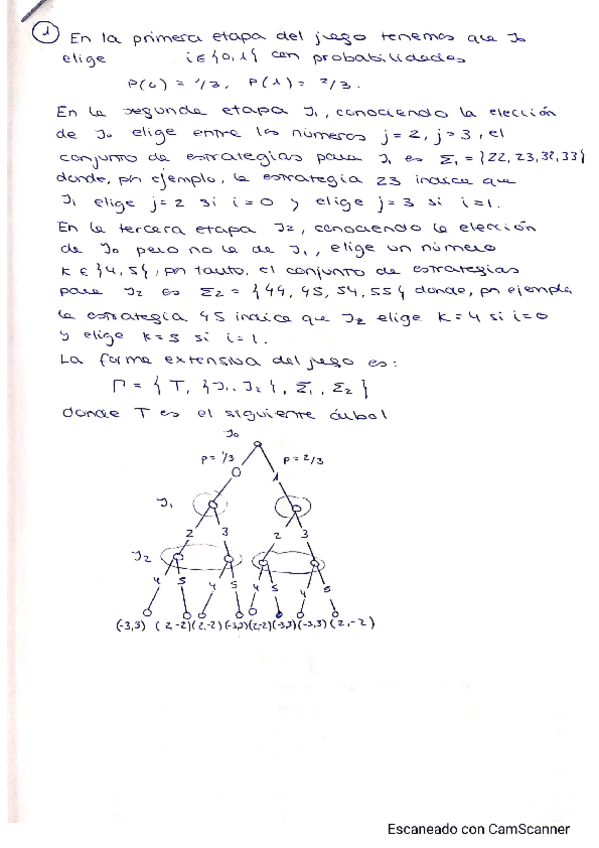 1 En la primera etapa del juego tenemos que J0
elige i∈{0,1} con probabilidades
P(0) = 1/3, P(1) = 2/3.
En la segunda etapa J1, conociendo la elección
de J0 elige entre los números j=2, j=3, el
conjunto de estrategias para J1 es Σ1 = {22,23,32,33}
donde, por ejemplo, la estrategia 23 indica que
J1 elige j=2 si i=0 y elige j=3 si i=1.
En la tercera etapa J2, conociendo la elección
de J0 pero no la de J1, elige un número
K∈{4,5}, por tanto, el conjunto de estrategias
para J2 es Σ2 = {44, 45, 54, 55} donde, por ejemplo
la estrategia 45 indica que J2 elige K=4 si i=0
y elige K=5 si i=1.
La forma extensiva del juego es:
Γ = { T, {J1, J2}, Σ1, Σ2 }
donde T es el siguiente árbol
J0
P=1/3 P=2/3
0 1
J1
2 3 2 3
J2
4 5 4 5 4 5 4 5
(-3,3) (2,-2) (2,-2) (-3,3) (2,-2) (-3,3) (-3,3) (2,-2)
Escaneado con CamScanner